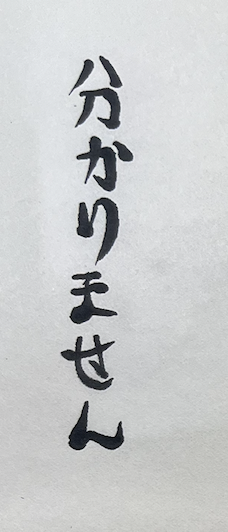 分かりません